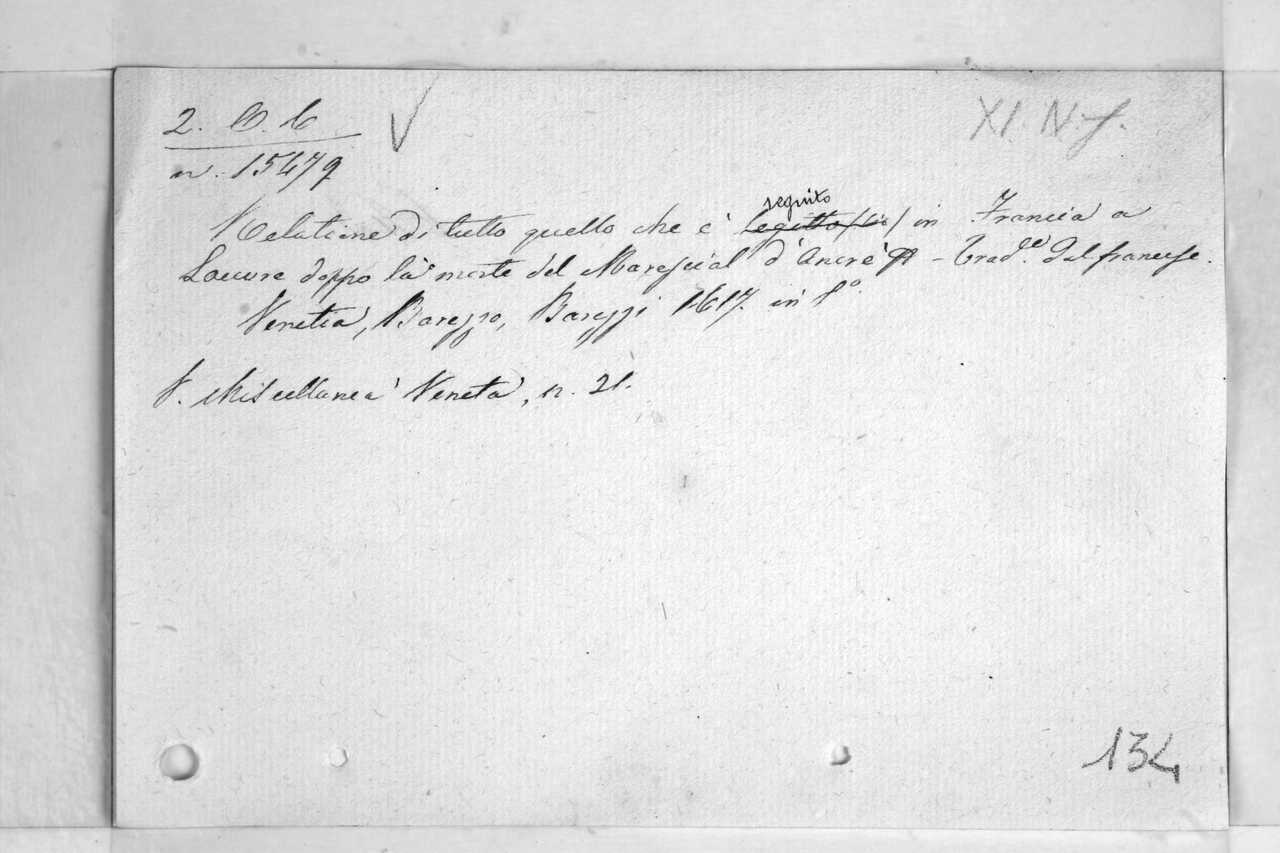 2. D. 6
XI. N. f.
n. 15479
seguito
Relatione di tutto quello che è in Francia a
Louure doppo la morte del Maresial d'Ancrè - Trad.e dal francese.
Venetia, Barezzo, Barezzi 1617. in 8°.
V. Miscellanea Veneta, n. 21.
134